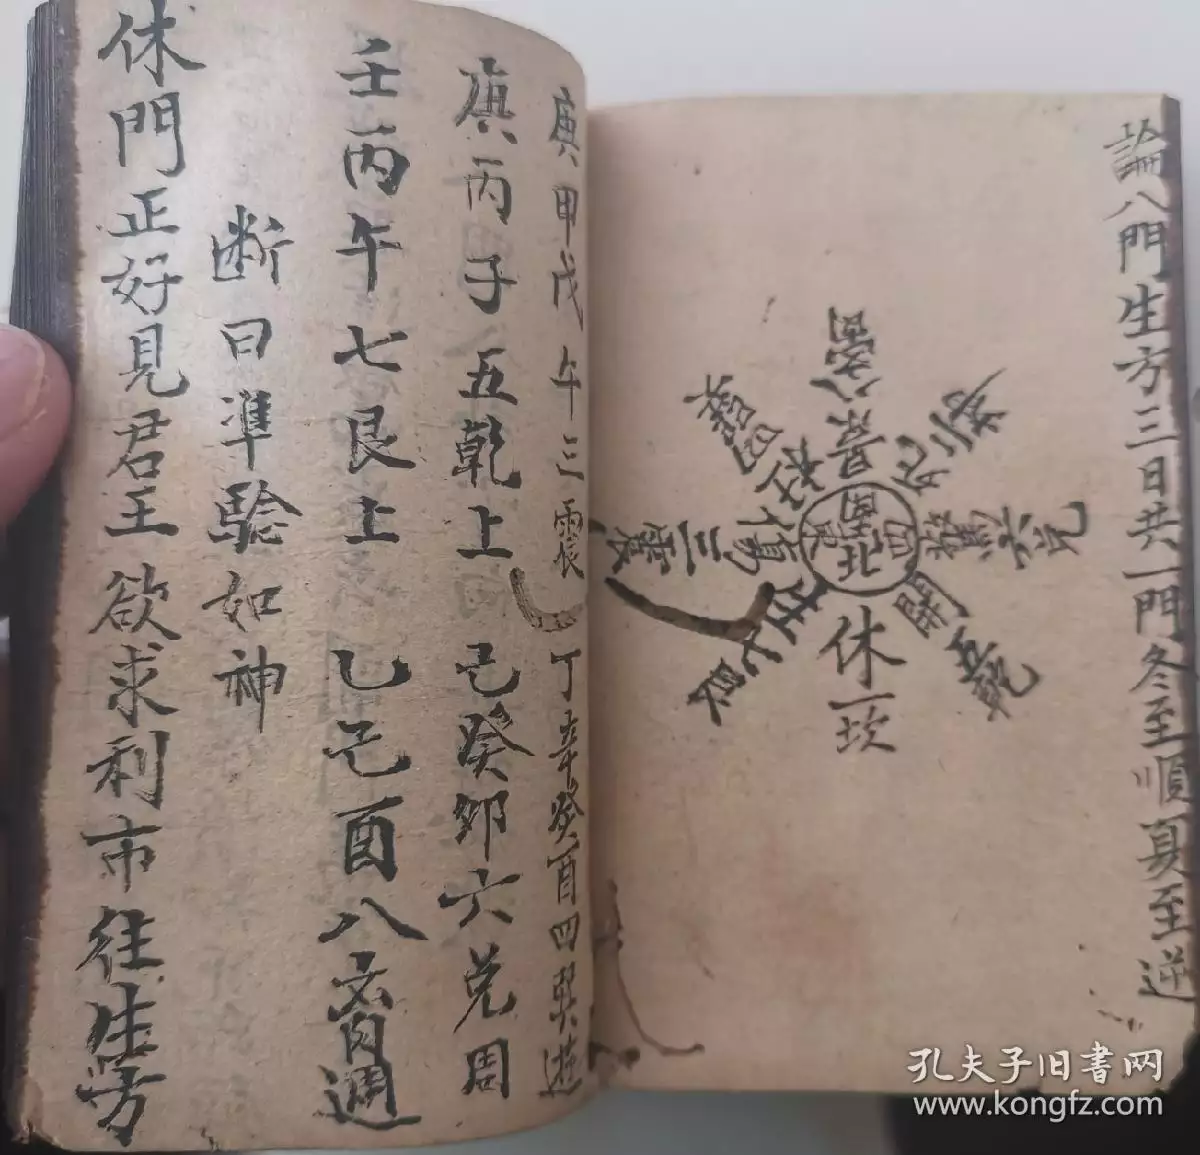 論八門生方三日共一門冬至順夏至逆
景
八
死二
六兌
開
五乾
休一坎
生
七艮
三震
杜
南
北
四
庚甲戊午三震丁辛癸酉四巽遊
庚丙子五乾上己癸卯六兌周
壬丙午七艮上乙己酉八离週
断曰準驗如神
休門正好見君王欲求利市往生方
孔夫子旧书网
www.kongfz.com